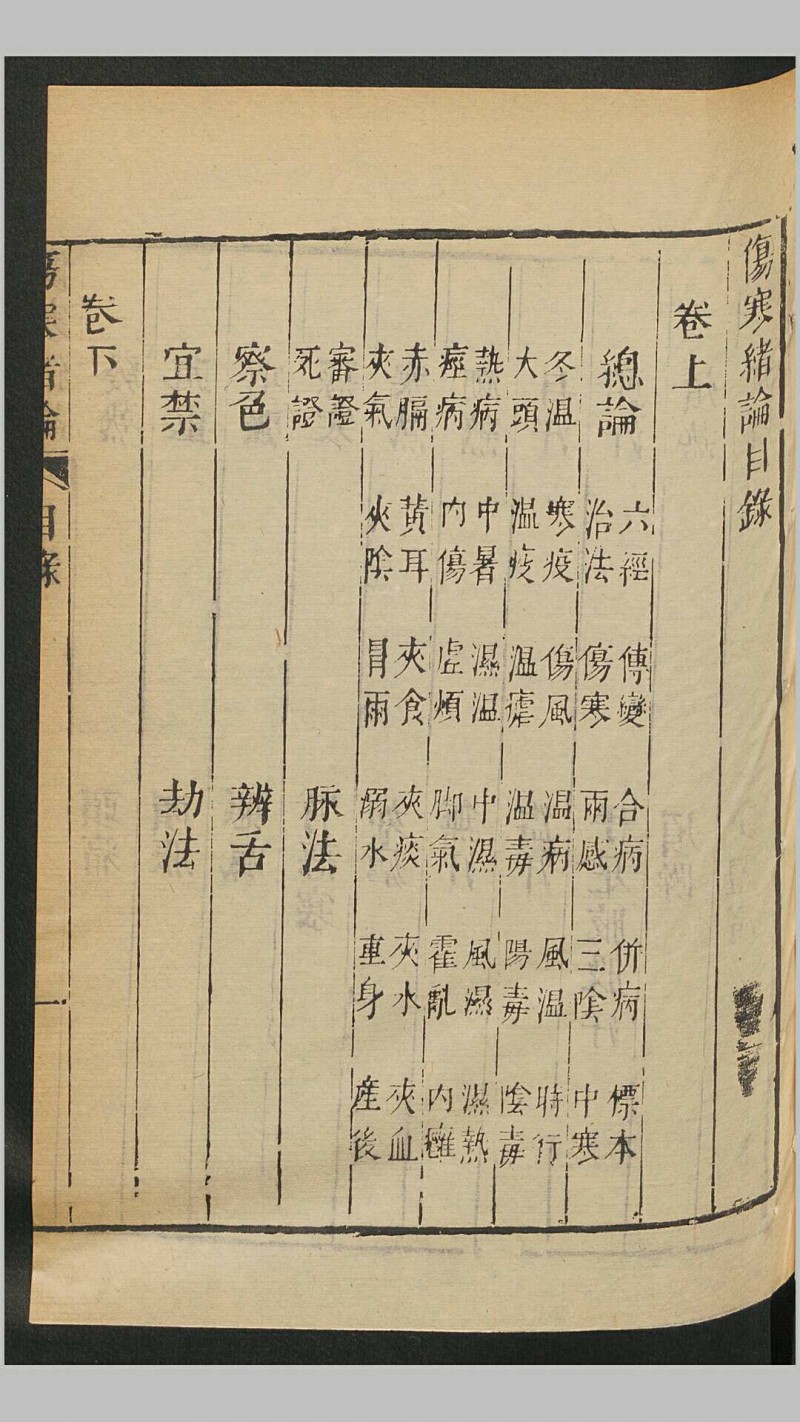 傷寒緒論目錄
卷上
總論
六經 傳變 合病 併病 標本
治法 傷寒 兩感 三陰 中寒
冬温 寒疫 傷風 温病 風温 時行
大頭 温疫 温瘧 温毒 陽毒 陰毒
熱病 中暑 濕温 中濕 風濕 濕熱
痙病 內傷 虛煩 脚氣 霍亂 內癰
赤膈 黃耳 夾食 夾痰 夾水 夾血
夾氣 夾陰 冒雨 溺水 重身 產後
審證
死證
脉法
察色 辨舌
宜禁 劫法
卷下
傷寒緒論 目錄 一